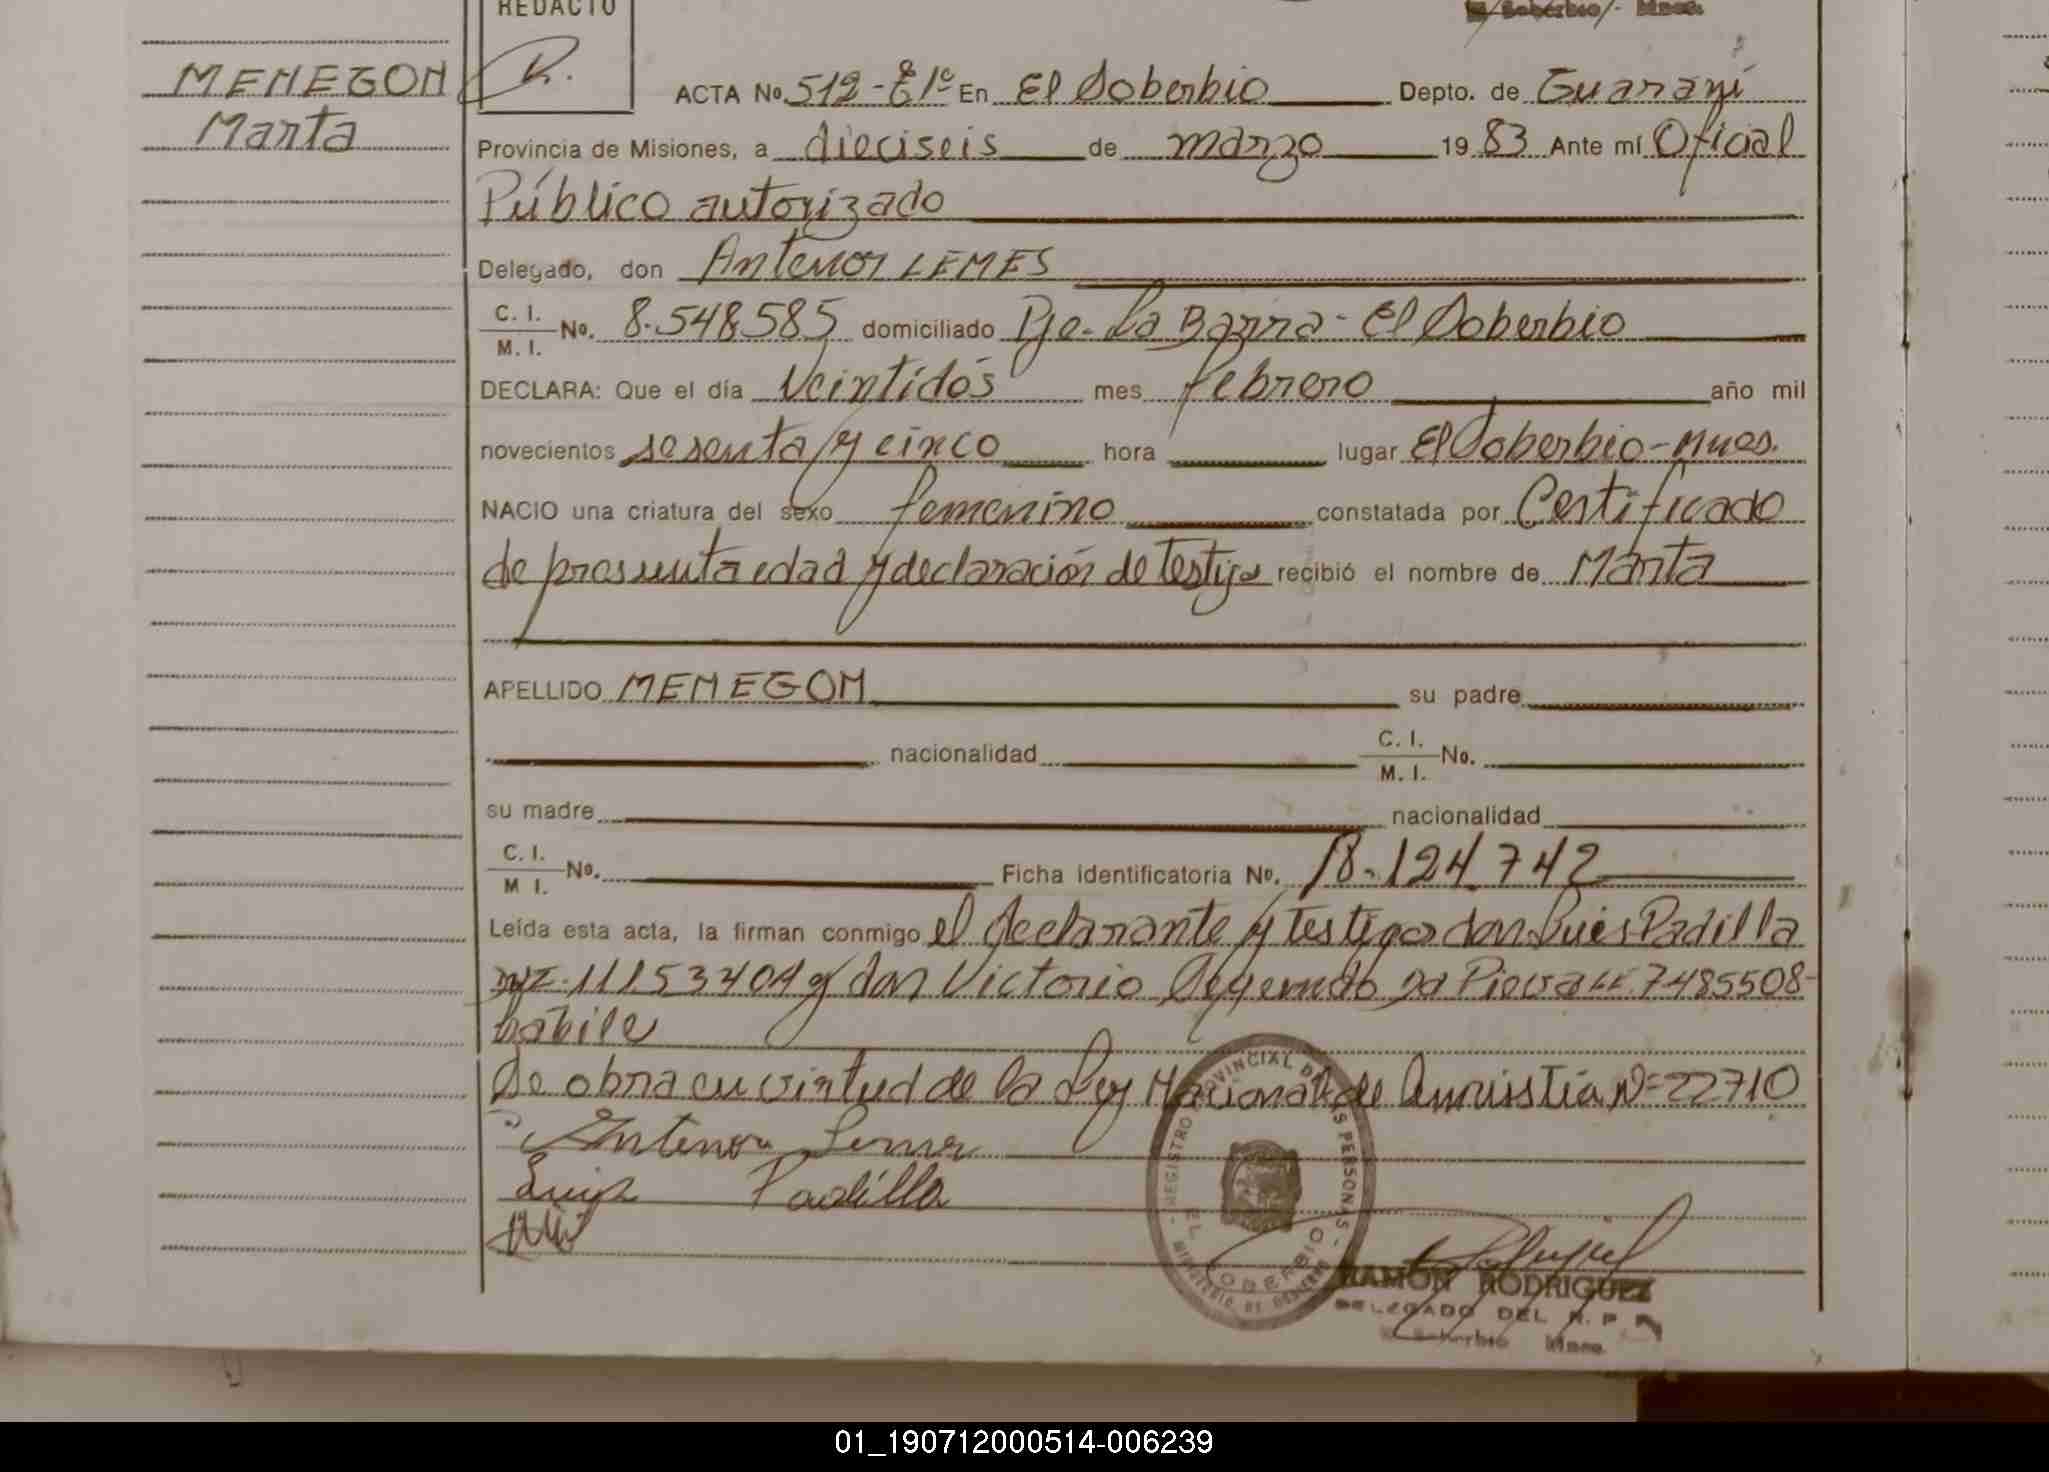 REDACTO
Soberbio - Mnes.
MENEGON
Marta
ACTA No. 512 - Tº 1º En El Soberbio Depto. de Guaraní
Provincia de Misiones, a dieciseis de marzo 19 83 Ante mí Oficial
Público autorizado
Delegado, don Antenor LEMES
C. I. / M. I. No. 8.548.585 domiciliado Pje. La Barra - El Soberbio
DECLARA: Que el día Veintidós mes febrero año mil
novecientos sesenta y cinco hora lugar El Soberbio - Mnes.
NACIO una criatura del sexo femenino constatada por Certificado
de presunta edad y declaración de testigos recibió el nombre de Marta
APELLIDO MENEGON su padre
nacionalidad C. I. / M. I. No.
su madre nacionalidad
C. I. / M I. No. Ficha identificatoria No. 18.124.742
Leída esta acta, la firman conmigo el declarante y testigos don Luis Padilla
y don Victorio 7485508-
habiles
Se obra en virtud de la Ley Nacional de Amnistía Nº 22710
Antenor Lemes
Luis Padilla
REGISTRO PROVINCIAL DE LAS PERSONAS - MINISTERIO DE GOBIERNO
EL SOBERBIO
RAMON RODRIGUEZ
DELEGADO DEL R. P.
Soberbio Mnes.
01_190712000514-006239